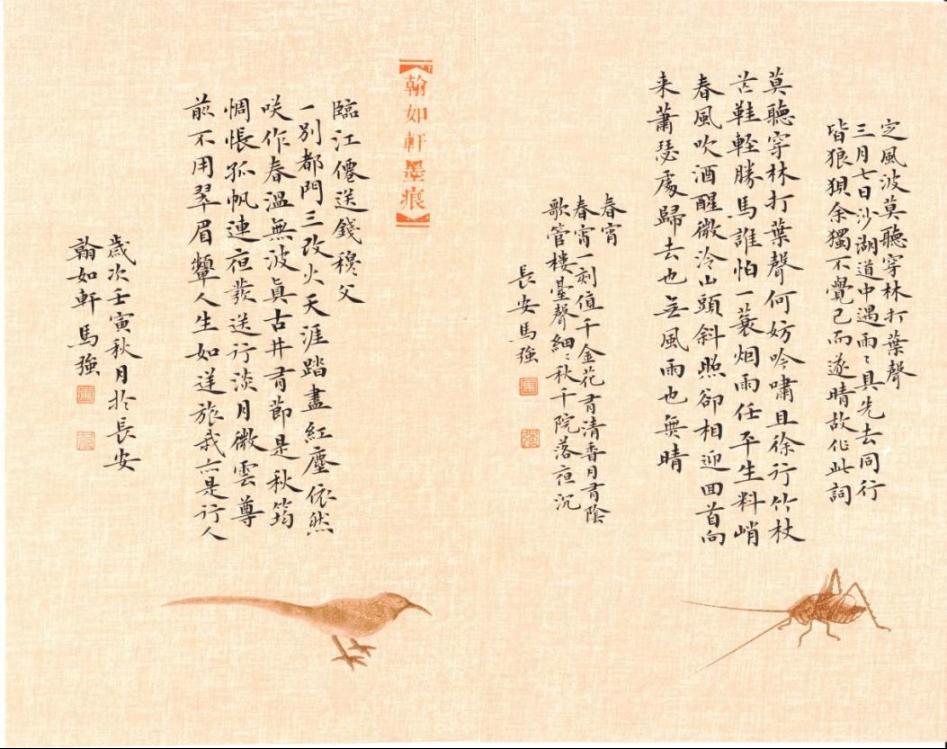 定風波莫聽穿林打葉聲
三月七日沙湖道中遇雨〻具先去同行
皆狼狽余獨不覺已而遂晴故作此詞
莫聽穿林打葉聲何妨吟嘯且徐行竹杖
芒鞋輕勝馬誰怕一蓑烟雨任平生料峭
春風吹酒醒微冷山頭斜照卻相迎回首向
来蕭瑟處歸去也无風雨也無晴
春宵
春宵一刻值千金花有清香月有陰
歌管楼臺聲細〻秋千院落夜沉
長安馬強
【翰如軒墨痕】
臨江僊送錢穆父
一別都門三改火天涯踏盡紅塵依然
咲作春溫無波真古井有節是秋筠
惆悵孤帆連夜發送行淡月微雲尊
前不用翠眉顰人生如逆旅我亦是行人
歲次壬寅秋月於長安
翰如軒馬強